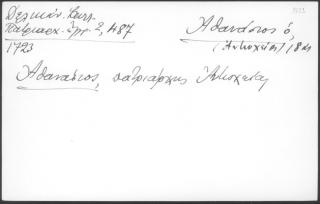 Δελικάν. Καλλ.
Πατριαρχ. Ἔγγρ. 2, 487
1723
Ἀθανάσιος ὁ,
(Ἀντιοχείας) 18 αἰ
Ἀθανάσιος, πατριάρχης Ἀντιοχείας